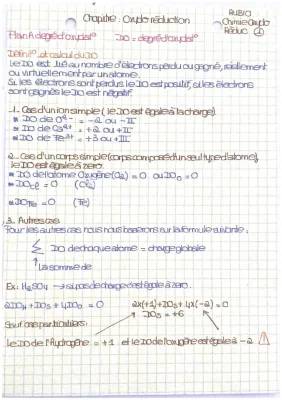 RUBIO
Chapitre : Oxydo réduction
Chimie Oxydo
Réduc 1
DO = degré d'oxydat°
Définit° et calcul du DO
Le DO est lié au nombre d'électrons perdu ou gagné, réellement
ou virtuellement par un atome.
Si les électrons sont perdus le DO est positif, si les électrons
sont gagnés le DO est négatif.
1. Cas d'un ion simple (le DO est égale à la charge)
DO de O²⁻ = -2 ou -II
= +2 ou +II
DO de Fe³⁺ = +3 ou +III
2. Cas d'un corps simple (corps composé d'un seul type d'atome),
le DO est égale à zéro.
DO de l'atome Oxygène (O₂) = 0 ou DO₀ = 0
= 0 (Cl₂)
DO Fe = 0 (Fe)
3. Autres cas
Pour les autres cas nous nous baserons sur la formule suivante :
Σ DO de chaque atome = charge globale
↑ la somme de
Ex : H₂SO₄ → si pas de charge c'est égale à zéro.
2DO H + DO S + 4DO O = 0
2x(+1) + DO S + 4x(-2) = 0
DO S = +6
Sauf cas particuliers :
Le DO de l'hydrogène = +1 et le DO de l'oxygène est égale à -2 !